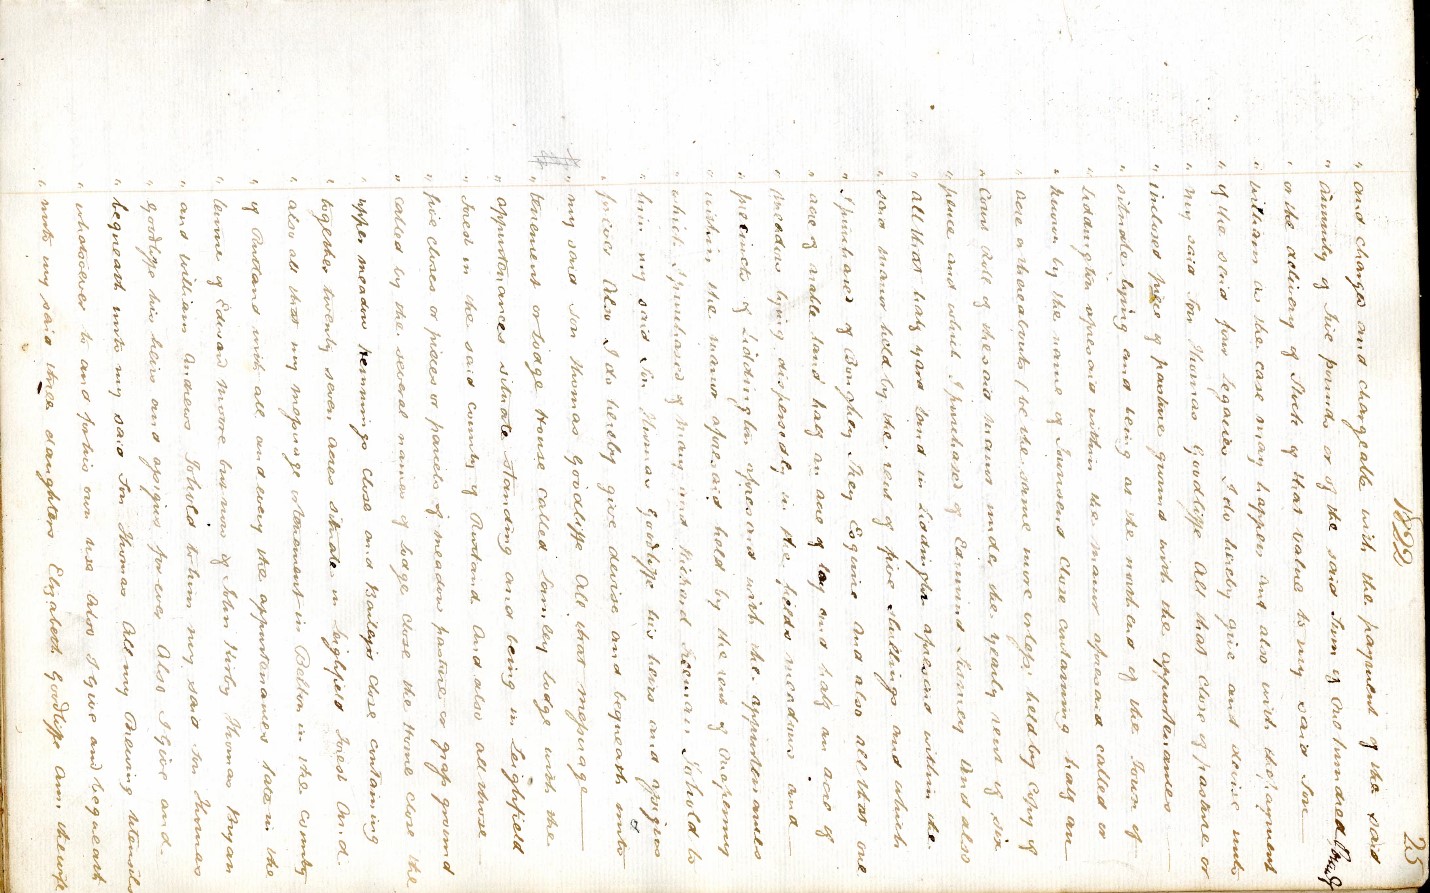 1822
25
" and charges and chargeable with the payment of the said
" Annuity of five pounds or of the said Sum of One hundred Pounds
" or the delivery of Stock of that value to my said Son
" William as the case may happen and also with the payment
" of the said four legacies I do hereby give and devise unto
" my said Son Thomas Goodliffe All that close of pasture or
" inclosed piece of pasture ground with the appurtenances
" situate lying and being at the north end of the Town of
" Liddington aforesaid within the manor aforesaid called or
" known by the name of Townsend Close containing half an
" acre or thereabouts (be the same more or less) held by Copy of
" Court Roll of the said manor under the yearly rent of six
" pence and which I purchased of Edmund and also
" all that half yard land in Liddington aforesaid within the
" said manor held by the rent of five shillings and which
" I purchased of Bonfhey Esquire and also all that one
" acre of arable land half an acre of ley and half an acre of
" meadow lying dispersedly in the fields meadows and
" precincts of Liddington aforesaid with the appurtenances
" within the manor aforesaid held by the rent of One penny
" which I purchased of Mary and Richard To hold to
" him my said Son Thomas Goodliffe his heirs and assigns
" for ever Also I do hereby give devise and bequeath unto
" my said son Thomas Goodliffe All that messuage
" tenement or lodge House called Lamley Lodge with the
" appurtenances situate standing and being in Leighfield
" Forest in the said County of Rutland And also all those
" five closes or pieces or parcels of meadow pasture or grass ground
" called by the several names of Lodge Close the Home close the
" upper meadow Hemmings close and Baileys close containing
" together twenty seven acres situate in Lighfield Forest And
" also all that my messuage or tenement in Belton in the County
" of Rutland with all and every the appurtenances late in the
" tenure of Edward Moore by name of John Thomas Bryan
" and William Andrews To hold to him my said Son Thomas
" Goodliffe his heirs and assigns for ever Also I give and
" bequeath unto my said Son Thomas All my Brewing Utensils
" whatsoever to and for his own use Also I give and bequeath
" unto my said three daughters Elizabeth Goodliffe Ann the wife